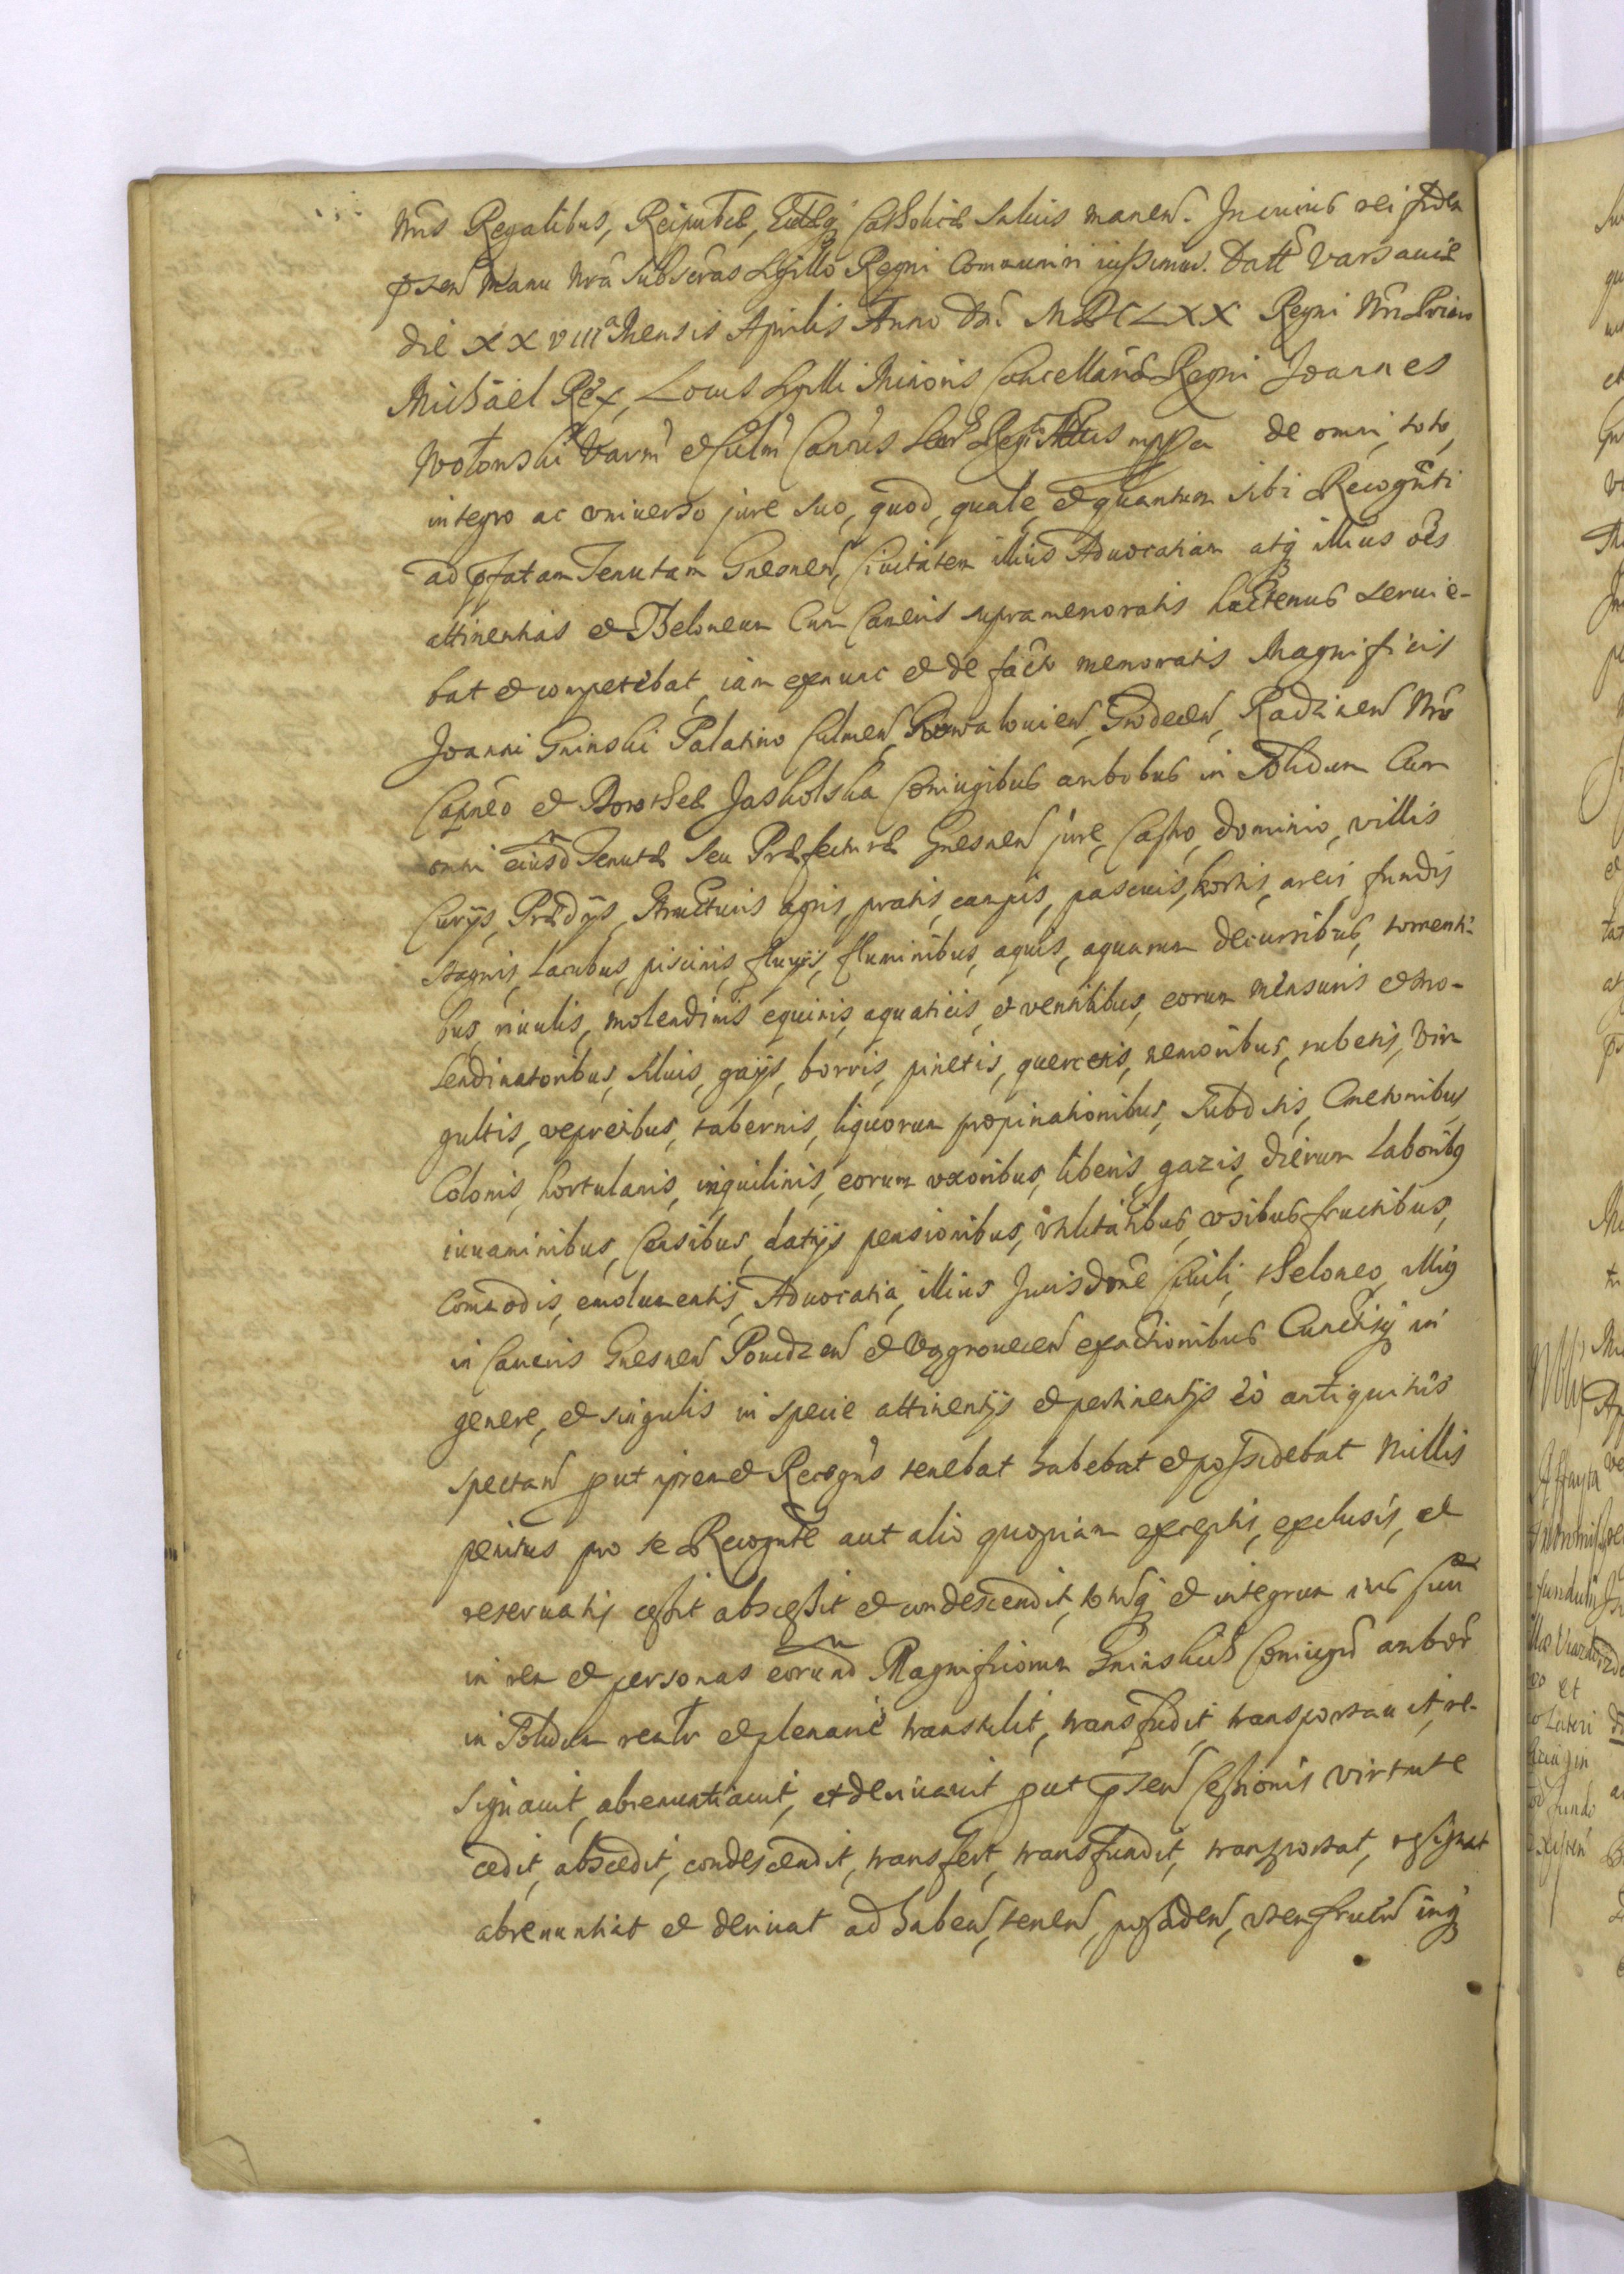 Nris Regalibus, Reipublcæ, Ecclæq Catholicæ saluis manen. In cuius rei fidem
pnten manu nrã subscras Sigillo Regni communiri iussimus. Datt Varsauiæ
die XXVIIIa Mensis Aprilis Anno Dni MDCLXX Regni Nri Primo
Michael Rex, Locus Sigilli Minoris Cancellariæ Regni Joannes
Wolonski Varm et Culm Canrus Regi Mttis mppa de omni, toto,
integro ac vniuerso jure suo, quod, quale, et quantum sibi Recognti
ad pfatam Tenutam Gnesnen, Ciuitatem illius Aduocatiam atq illius oẽs
attinentias et Theloneum Cum Cameris supramemoratis hactenus seruie-
bat et competebat, iam exnunc et de facto memoratis Magnificis
Joanni Gninski Palatino Culmen, Grodecen, Radzinen Nro
Capneo et Dorotheæ Jaskolska Coniugibus ambobus in solidum Cum
omni eiusd Tenutæ seu Præfecturæ Gnesnen jure, Castro, dominio, villis
Curijs, Prædijs, structuris agris, pratis, campis, pascuis, hortis, areis, fundis
stagnis, Lacubus, piscinis, fluuijs, fluminibus, aquis, aquarum decursibus, torrenti-
bus, riuulis, molendinis equinis, aquaticis, et ventilibus, eorum mensuris et mo-
lendinatoribus, siluis, gaijs, borris, pinetis, quercetis, nemoribus, rubetis, vir
gultis, vepreibus, tabernis, liquorum propinationibus, subditis, Cmetonibus
Colonis, hortulanis, inquilinis, eorum vxoribus, liberis, gazis, dierum laboribq
iuuaminibus, Censibus, datijs pensionibus, vtilitatibus, vsibus fructibus,
commodis, emolumentis, Aduocatia, illius Jurisdone Ciuili, theloneo, illiq
in Cameris Gnesnen Powidzen et Vągrouecen exactionibus Cunctisq in
genere, et singulis in specie attinentijs et pertinentijs eò antiquitùs
spectan put ipsemet Recogns tenebat habebat et possidebat Nullis
penitus pro se Recognte aut alio quopiam exceptis, exclusis, et
reseruatis cessit abscessit et condescendit, totumq et integrum ius suũ
in rem et personas eorund Magnificorum Gninskich Coniugũ ambor
in solidum realr et plenarie transtulit, transfudit transportauit, re-
signauit, abrenuntiauit, et deriuauit put pnten Cessionis virtute
cedit, abscedit, condescendit, transfert, transfundit, transportat, resignat
abrenuntiat et deriuat ad haben, tenen, possiden, vten fruen inq